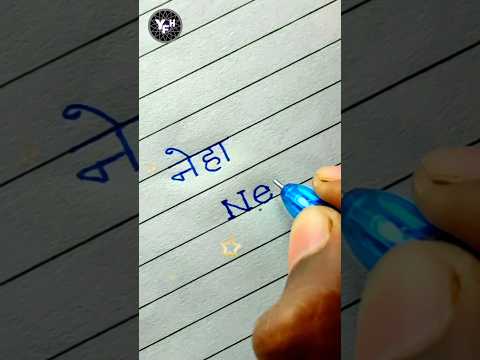 नेहा
Ne